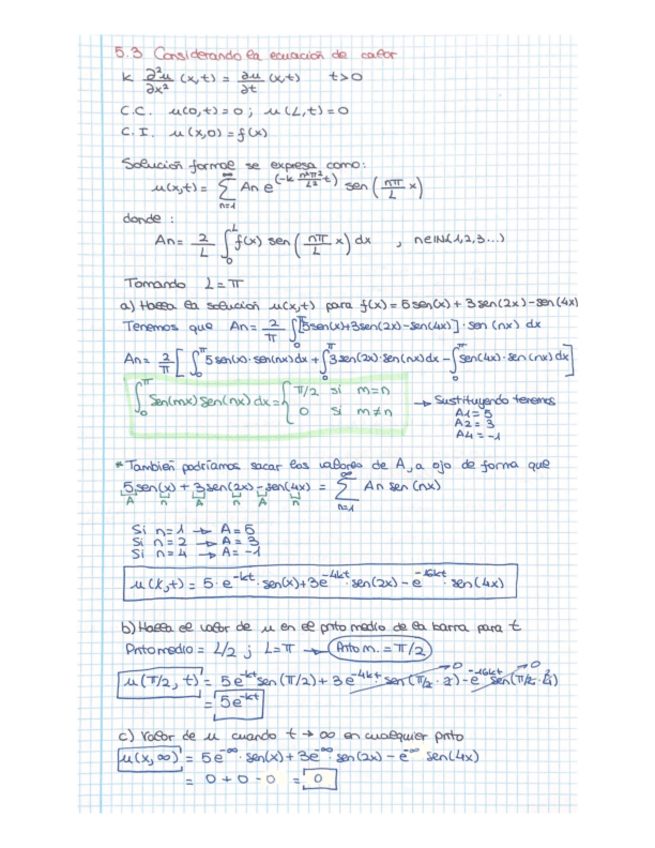 5.3 Considerando la ecuación de calor
k ∂²u/∂x² (x,t) = ∂u/∂t (x,t)   t>0
C.C. u(0,t)=0 ; u(L,t)=0
C.I. u(x,0)=f(x)
Solución formal se expresa como:
u(x,t) = ∑_{n=1}^{∞} An e^(-k n²π²/L² t) sen(nπ/L x)
donde :
An = 2/L ∫_0^L f(x) sen(nπ/L x) dx , n∈IN(1,2,3...)
Tomando L=π
a) Halla la solución u(x,t) para f(x)=5sen(x)+3sen(2x)-sen(4x)
Tenemos que An= 2/π ∫_0^π [5sen(x)+3sen(2x)-sen(4x)]·sen(nx) dx
An= 2/π [∫_0^π 5sen(x)·sen(nx)dx + ∫_0^π 3sen(2x)·sen(nx)dx - ∫_0^π sen(4x)·sen(nx)dx]
∫_0^π sen(mx)sen(nx)dx = { π/2 si m=n
0 si m≠n
→ Sustituyendo tenemos
A1=5
A2=3
A4=-1
* También podríamos sacar los valores de A, a ojo de forma que
5sen(x)+3sen(2x)-sen(4x) = ∑_{n=1}^{∞} An sen(nx)
A n A n A n
Si n=1 → A=5
Si n=2 → A=3
Si n=4 → A=-1
u(x,t) = 5·e^-kt·sen(x)+3e^-4kt·sen(2x)-e^-16kt·sen(4x)
b) Halla el valor de u en el pnto medio de la barra para t
Pnto medio = L/2 ; L=π → Pnto m. = π/2
u(π/2, t) = 5e^-kt sen(π/2)+3e^-4kt sen(π/2·2)-e^-16kt sen(π/2·4) → 0 → 0
= 5e^-kt
c) Valor de u cuando t→∞ en cualquier pnto
u(x,∞) = 5e^-∞·sen(x)+3e^-∞·sen(2x)-e^-∞ sen(4x)
= 0+0-0 = 0